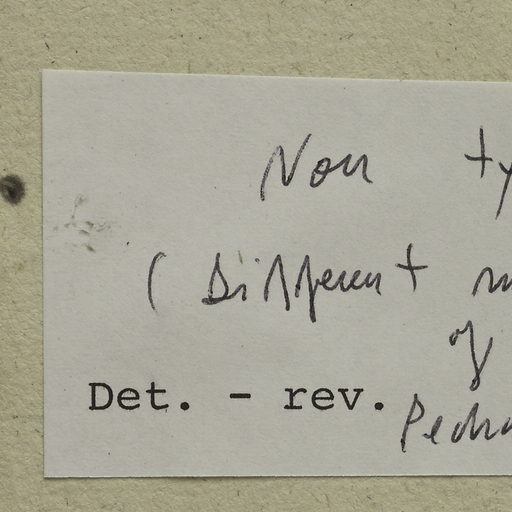 Non ty
( Different m
of
Det. - rev. Pedro